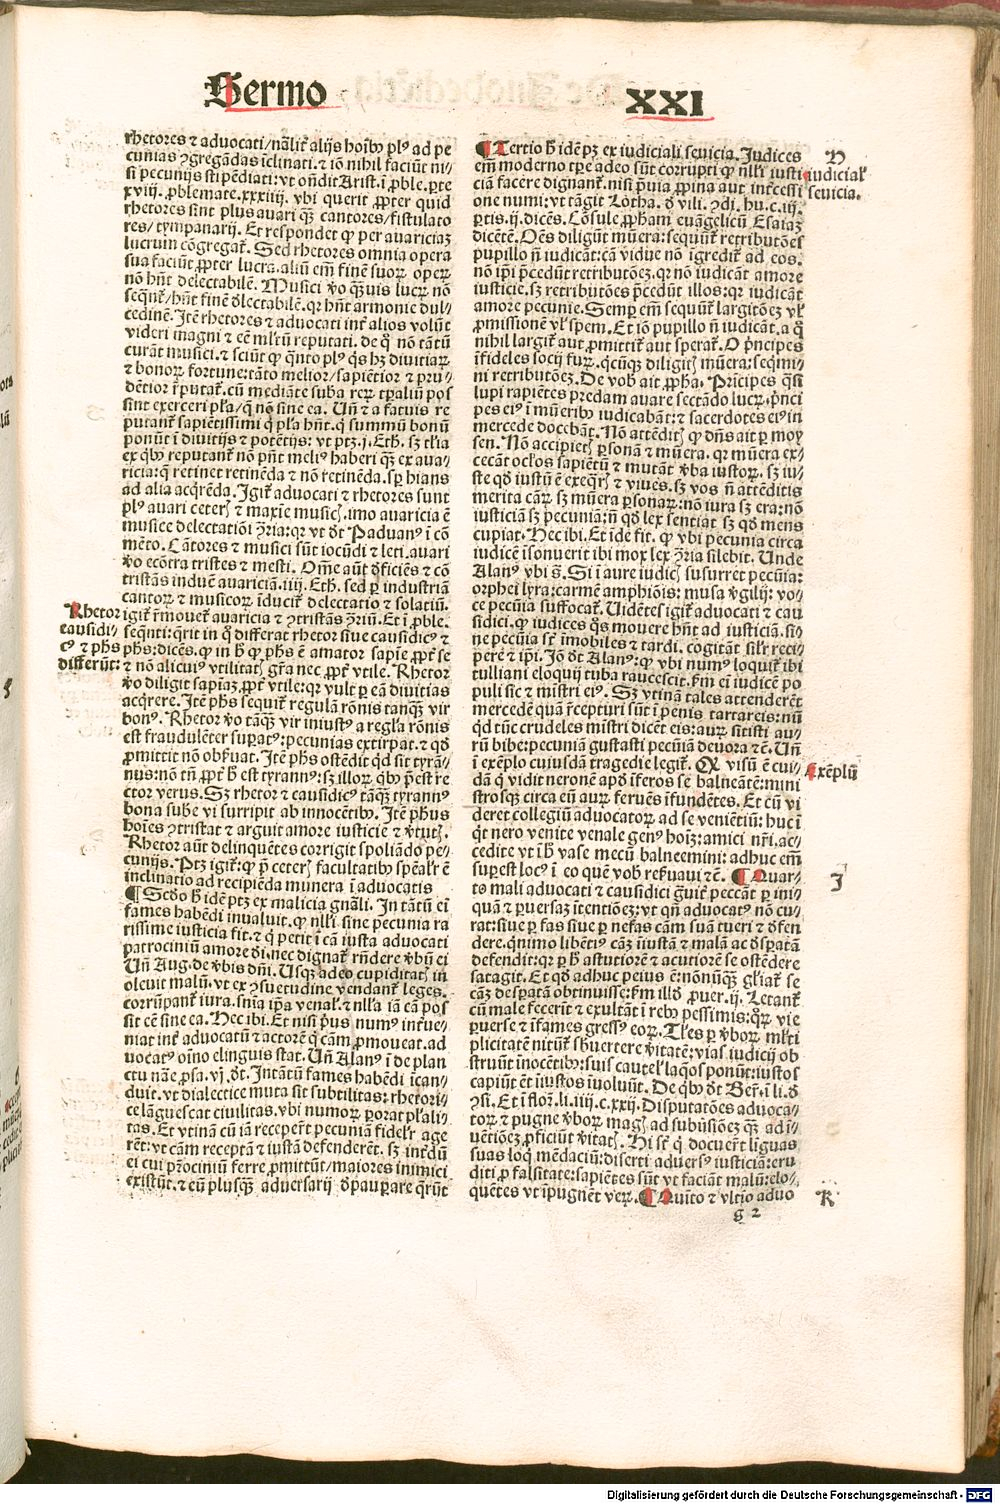 Sermo XXI
rhetores ⁊ advocati/nãlit̃ alijs hoĩbꝰ plꝰ ad pe
cunias ꝯgregãdas ĩclinati. ⁊ iõ nihil faciũt ni/
si pecunijs stipẽdiati: vt oñdit Arist. ĩ ꝓble. ꝑte
xviij. ꝓblemate. xxxiiij. vbi querit ꝓpter quid
rhetores sint plus avari qᷓꝫ cantores/fistulato
res/tympanarij. Et respondet ꝙ per avariciaꝫ
lucrum cõgregat̃. Sed rhetores omnia opera
sua faciũt ꝓpter lucra. aliũ em̃ finẽ suoꝝ opeꝝ
nõ hñt delectabilẽ. Musici ṽo qᷓꝫuis lucꝝ nõ
seqñt̃/hñt finẽ dlectabilẽ. qꝛ hñt armonie dul/
cedinẽ. Itẽ rhetores ⁊ advocati int̃ alios volũt
videri magni ⁊ eẽ ml̃tũ reputati. de qͦ nõ tãtũ
curãt musici. ⁊ sciũt ꝙ qͣnto plꝰ qͥs hꝫ divitiaꝝ
⁊ bonoꝝ fortune: tãto melior/sapiẽtior ⁊ pru/
dẽtior r̃putat̃. cũ mediãte suba reꝝ tꝑaliũ pos
sint exerceri pl̃a/qͥ nõ sine ea. Uñ ⁊ a fatuis re
putant̃ sapiẽtissimi qͥ pl̃a hñt. qͥ summũ bonũ
ponũt ĩ divitijs ⁊ potẽtijs: vt ptꝫ. j. Eth. sꝫ tl̃ia
ex qͥbꝰ reputant̃ nõ pñt meliꝰ haberi qᷓꝫ ex ava/
ricia: q̃ retinet retinẽda ⁊ nõ retinẽda. sp̃ hians
ad alia acqͥrẽda. Igit̃ advocati ⁊ rhetores sunt
plꝰ avari ceteris ⁊ maxĩe musicis. imo avaricia ẽ
musice delectatiõi ꝯ̃ria: qꝛ vt dt̃ Paduanꝰ ĩ cõ
mẽto. Cãtores ⁊ musici sũt iocũdi ⁊ leti. avari
ṽo ecõtra tristes ⁊ mesti. Om̃e aũt dficiẽs ⁊ cõ
tristãs induẽ avariciã. iiij. Eth. sed ꝑ industriã
cantoꝝ ⁊ musicoꝝ ĩducit̃ delectatio ⁊ solatiũ.
Rhetor
causidi/
cꝰ ⁊ phs
differũt:
igit̃ r̃movet̃ avaricia ⁊ ꝯtristãs ꝯ̃riũ. Et ĩ ꝓble.
seq̃nti: q̃rit in qͦ differat rhetor sive causidicꝰ ⁊
phs: dicẽs. ꝙ in hͦ ꝙ phs ẽ amator sapie ꝓpt̃ se
⁊ nõ alicuiꝰ vtilitatis gr̃a nec ꝓpt̃ vtile. Rhetor
ṽo diligit sapiaꝫ ꝓpt̃ vtile: qꝛ vult ꝑ eã divitias
acqͥrere. Itẽ phs sequit̃ regulã rõnis tanqᷓꝫ vir
bonꝰ. Rhetor ṽo tãqᷓꝫ vir iniustꝰ a regl̃a rõnis
est fraudulẽter suꝑatꝰ: pecunias extirpat. ⁊ qd
ꝓmittit nõ obs̃uat. Itẽ phs ostẽdit qd sit tyrã/
nus: nõ tñ ꝓpt̃ hͦ est tyrannꝰ: sꝫ illoꝝ qͥbꝰ pẽst re
ctor verus. Sꝫ rhetor ⁊ causidicꝰ tãqᷓꝫ tyrannꝰ
bona sube vi surripit ab innocẽtibꝰ. Itẽ phus
hoĩes ꝯtristat ⁊ arguit amore iusticie ⁊ ṽtutis.
Rhetor aũt delinquẽtes corrigit spoliãdo pe/
cunijs. Ptꝫ igit̃: ꝙ p̃ ceteris facultatibꝰ spẽal̃r ẽ
inclinatio ad recipiẽda munera ĩ advocatis
¶ Scdo hͦ idẽ ptꝫ ex malicia gnãli. In tãtũ ei
fames habẽdi invaluit. ꝙ nl̃li sine pecunia ra
rissime iusticia fit. ⁊ qͥ petit ĩ cã iusta advocati
patrociniũ amore di. nec dignat̃ rñdere ṽbũ ei
Uñ Aug. de ṽbis dñi. Usqꝫ adeo cupiditatis in
olevit malũ. vt ex ꝯsuetudine vendant̃ leges.
corrũpant̃ iura. snĩa ip̃a venal̃. ⁊ nl̃la iã cã pos
sit eẽ sine ca. Hec ibi. Et nisi pͥus numꝰ int̃ue/
niat int̃ advocatũ ⁊ actorẽ qͥ cãm ꝓmoveat. ad
vocatꝰ oĩno elinguis stat. Uñ Alanꝰ ĩ de plan
ctu nãe ꝓsa. vj. dt̃. Intãtũ fames habẽdi ĩcan/
duit. vt dialectice muta sit subtilitas: rhetori/
ce lãguescat civilitas. vbi numoꝝ ꝑorat pl̃ali/
tas. Et vtinã cũ iã receꝑẽt pecuniã fidel̃r age
rẽt: vt cãm receptã ⁊ iustã defenderẽt. sꝫ int̃dũ
ei cui pr̃ociniũ ferre ꝓmittũt/maiores inimici
existũt. ⁊ eũ plusqᷓꝫ adversarij dpauꝑare qͥrũt
¶ Tertio hͦ idẽ ptꝫ ex iudiciali sevicia. Judices
em̃ moderno tꝑe adeo sũt corrupti ꝙ nl̃li iusti
ciã facere dignant̃. nisi pͥuia ꝓpina aut int̃cessi
one numi: vt tãgit Lotha. d vili. ꝯdi. hu. c. iij.
ꝑtis. ij. dicẽs. Cõsule ꝓphãm euãgelicũ Esaiaꝫ
dicẽtẽ. Oẽs diligũt mũera: sequũt̃ retributõeS
pupillo ñ iudicãt: cã vidue nõ ĩgredit̃ ad eos.
nõ ip̃i p̃cedũt retributõeꝫ. qꝛ nõ iudicãt amore
iusticie. sꝫ retributões p̃cedũt illos: qꝛ iudicãt
amore pecunie. Semꝑ em̃ sequũt̃ largitõeꝫ vl̃
ꝓmissionẽ vl̃ spem. Et iõ pupillo ñ iudicãt. a qͦ
nihil largit̃ aut ꝓmittit̃ aut sperat̃. O pͥncipes
ĩfideles socij furũ. qͥcũqꝫ diligitis mũera: seqͥmi/
ni retributõeꝫ. De vobis ait ꝓpha. Pꝛĩcipes qͣsi
lupi rapiẽtes predam avare sectãdo lucꝝ. pͥnci
pes eiꝰ ĩ mũeribꝰ iudicabãt: ⁊ sacerdotes eiꝰ in
mercede docebãt. Nõ attẽditis ꝙ dñs ait ꝑ moy
sen. Nõ accipietis ꝑsonã ⁊ mũera. qꝛ mũera ex/
cecãt oclos sapiẽtũ ⁊ mutãt ṽba iustoꝝ. sꝫ iu/
ste qd iustũ ẽ exeqͥris ⁊ vives. sꝫ vos ñ attẽditis
merita cãꝝ. sꝫ mũera ꝑsonaꝝ: nõ iura sꝫ era: nõ
iusticiã sꝫ pecuniã: ñ qd lex sentiat sꝫ qd mens
cupiat. Hec ibi. Et ide fit. ꝙ vbi pecunia circa
iudicẽ ĩsonuerit ibi mox lex ꝯ̃ria silebit. Unde
Alanꝰ vbi s̃. Si ĩ aure iudicis susurret pecũia:
orphei lyra: carmẽ amphiõis: musa ṽgilij: vo/
ce pecũia suffocat̃. Uidẽtes igit̃ advocati ⁊ cau
sidici. ꝙ iudices qͦs movere hñt ad iusticiã. si/
ne pecũia st̃ ĩmobiles ⁊ tardi. cogitãt sil̃r reci/
pere ⁊ ip̃i. Jõ dt̃ Alanꝰ: ꝙ vbi numꝰ loquit̃ ibi
tulliani eloquij tuba raucescit. ẜm ei iudicẽ po
puli sic ⁊ mĩstri eiꝰ. Sꝫ vtinã tales attenderẽt
mercedẽ quã r̃cepturi sũt ĩ penis tartareis: nũ
qd tũc crudeles mĩstri dicẽt eis: auꝝ sitisti au/
rũ bibe: pecuniã gustasti pecũiã devora ⁊c̃. Uñ
ĩ exẽplo cuiusdã tragedie legit̃. Qꝛ visũ ẽ cui/
dã qͥ vidit neronẽ apd ĩferos se balneãtẽ: mini
strosqꝫ circa eũ auꝝ fervẽs ĩfundẽtes. Et cũ vi
deret collegiũ advocatoꝝ ad se venientiũ: huc ĩ
qͥt nero venite venale genꝰ hoĩꝫ: amici nr̃i. ac/
cedite vt ĩ hͦ vase mecũ balneemini: adhuc em̃
suꝑest locꝰ ĩ eo quẽ vob̃ res̃uavi ⁊c̃. ¶ Quar/
to mali advocati ⁊ causidici gͣvit̃ peccãt ꝑ ini/
quã ⁊ ꝑversaꝫ ĩtentiõeꝫ: vt qñ advocatꝰ nõ cu/
rat: sive ꝑ fas sive ꝑ nefas cãm suã tueri ⁊ dfen
dere. qͥnimo libẽtiꝰ cãꝫ ĩiustã ⁊ malã ac dsꝑatã
defendit: qꝛ ꝑ hͦ astutiorẽ ⁊ acutiorẽ se ostẽdere
satagit. Et qd adhuc peius ẽ: nõnũqᷓꝫ gl̃iat̃ se
cãꝫ desꝑatã obtinuisse: ẜm illd ꝓver. ij. Letant̃
cũ male fecerit ⁊ exultãt ĩ rebꝰ pessimis: qͦꝝ vie
ꝑverse ⁊ ĩfames gressꝰ eoꝝ. Tl̃es ꝑ ṽboꝝ ml̃ti
plicitatẽ nitũt̃ sbvertere ṽitatẽ: vias iudicij ob
struũt ĩnocẽtibꝰ: suis cautel̃ laqͦs ponũt: iustos
capiũt ⁊t iustos ĩvolvũt. De qͥbꝰ dt̃ Ber̃. i li. d
ꝯsi. Et ĩ floꝛ. li. iiij. c. xxij. Disputatões advoca/
toꝝ ⁊ pugne ṽboꝝ magis ad subv̈siõeꝫ qᷓꝫ adi/
vẽtiõeꝫ ꝓficiũt ṽitatis. Hi st̃ qͥ docuer̃t lĩguas
suas loqͥ mẽdaciũ: diserti adversꝰ iusticiã: eru
diti ꝓ falsitate: sapiẽtes sũt vt faciãt malũ: elo/
quẽtes vt ĩpugnẽt veꝝ. ¶ Quĩto ⁊ vltĩo advo
D
iudicial̃
sevicia.
Exẽplũ
J
K
g 2
Digitalisierung gefördert durch die Deutsche Forschungsgemeinschaft - DFG